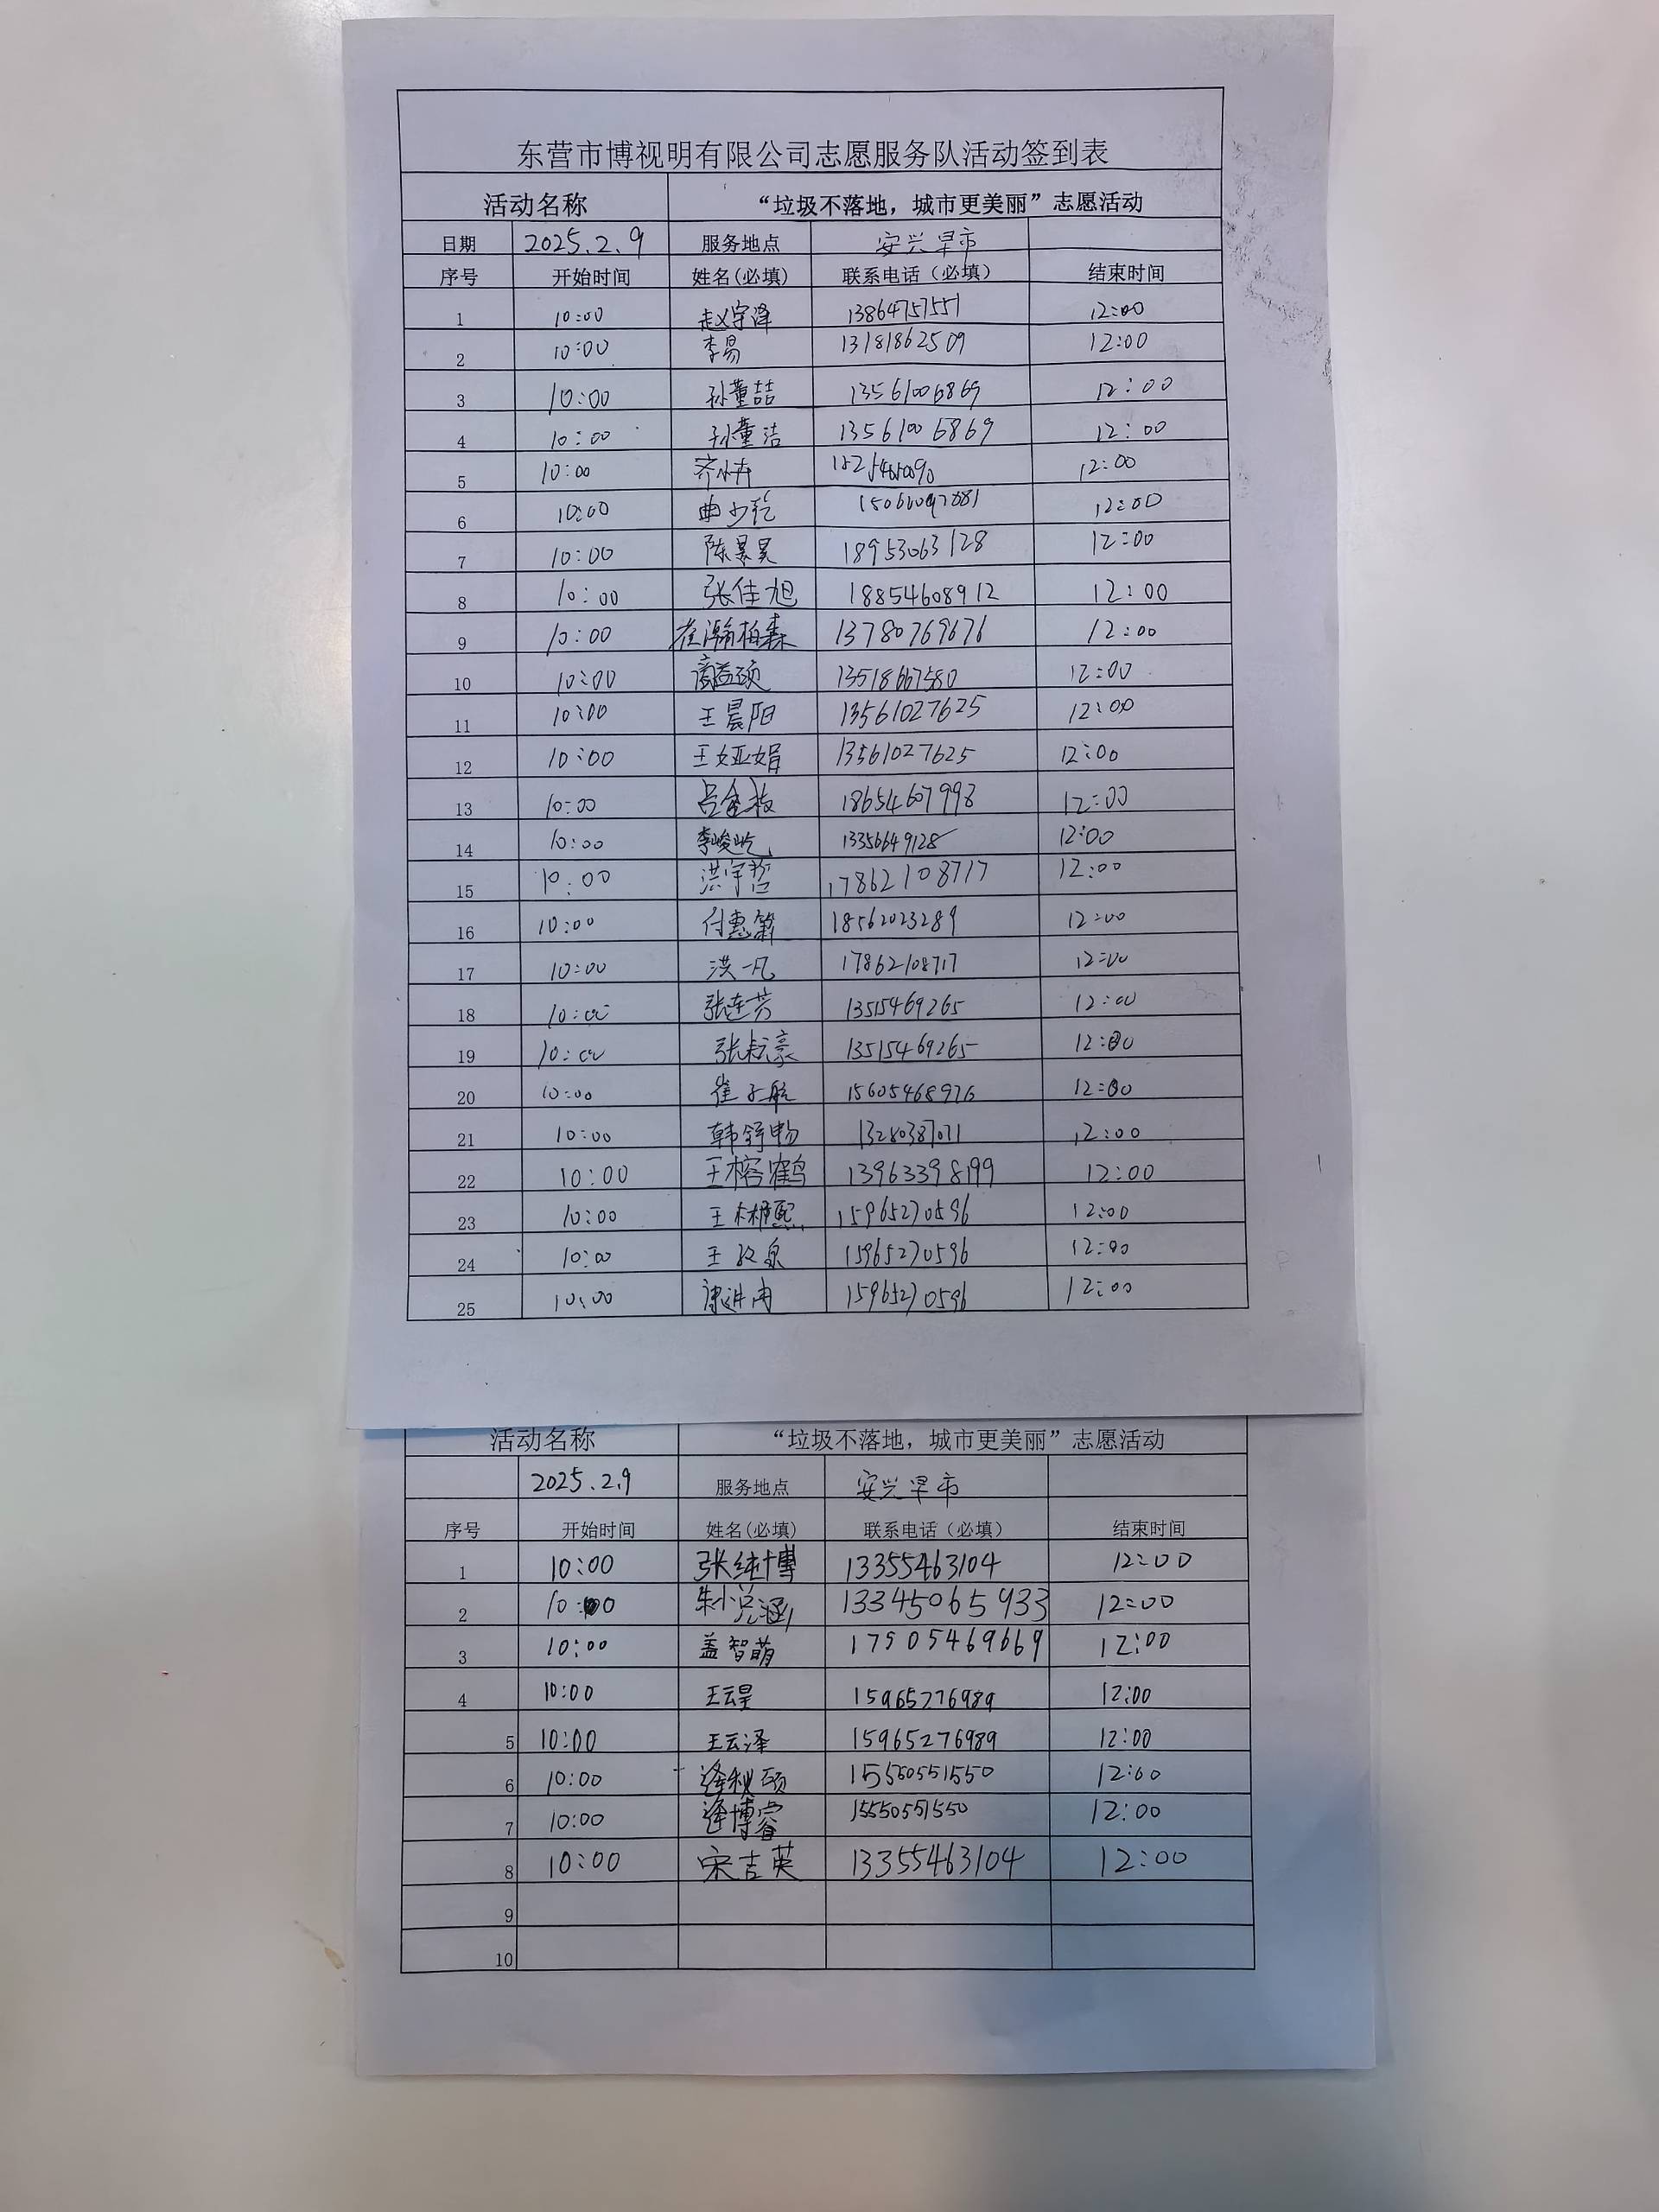 东营市博视明有限公司志愿服务队活动签到表
活动名称 “垃圾不落地，城市更美丽”志愿活动
日期 2025.2.9 服务地点 安兴早市
序号 开始时间 姓名(必填) 联系电话（必填） 结束时间
1 10:00 赵宇泽 13864757551 12:00
2 10:00 李易 13181862509 12:00
3 10:00 孙董喆 13561006869 12:00
4 10:00 孙董洁 13561006869 12:00
5 10:00 12:00
6 10:00 12:00
7 10:00 18953063128 12:00
8 10:00 张佳旭 18854608912 12:00
9 10:00 崔瀚柏森 13780769676 12:00
10 10:00 12:00
11 10:00 王晨阳 13561027625 12:00
12 10:00 王娅娟 13561027625 12:00
13 10:00 18654607998 12:00
14 10:00 李峻屹 12:00
15 10:00 洪宇哲 17862108717 12:00
16 10:00 18562023289 12:00
17 10:00 洪一凡 17862108717 12:00
18 10:00 张莲芳 13515469265 12:00
19 10:00 张耘豪 13515469265 12:00
20 10:00 崔子航 15605468976 12:00
21 10:00 韩舒畅 12:00
22 10:00 王榕鹤 13963398199 12:00
23 10:00 15965270596 12:00
24 10:00 15965270596 12:00
25 10:00 15965270596 12:00
活动名称 “垃圾不落地，城市更美丽”志愿活动
2025.2.9 服务地点 安兴早市
序号 开始时间 姓名(必填) 联系电话（必填） 结束时间
1 10:00 张纯博 13355463104 12:00
2 10:00 13345065933 12:00
3 10:00 盖智萌 17505469669 12:00
4 10:00 王云昊 15965276989 12:00
5 10:00 王云泽 15965276989 12:00
6 10:00 15550551550 12:00
7 10:00 逄博睿 15550551550 12:00
8 10:00 宋吉英 13355463104 12:00
9
10